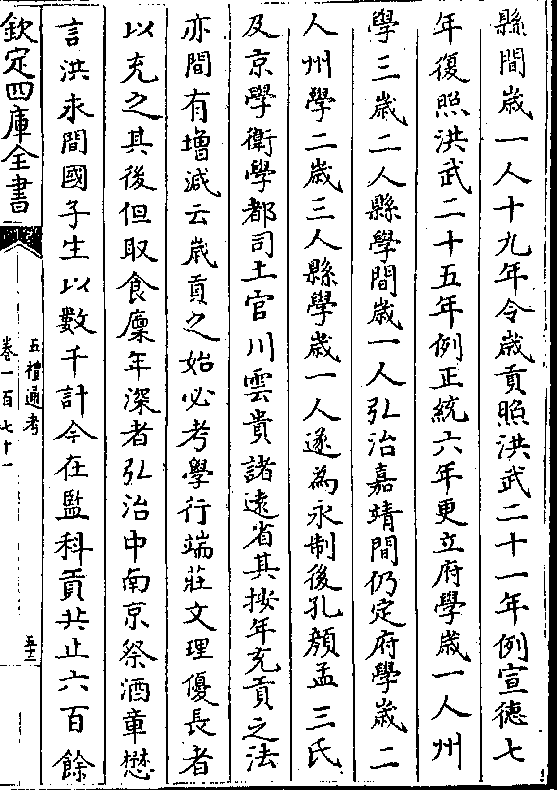 縣間歲一人十九年令歲貢照洪武二十一年例宣德七
年復照洪武二十五年例正統六年更立府學歲一人州
學三歲二人縣學間歲一人弘治嘉靖間仍定府學歲二
人州學二歲三人縣學歲一人遂為永制後孔顏孟三氏
及京學衛學都司土官川雲貴諸遠省其按年充貢之法
亦間有增減云歲貢之始必考學行端莊文理優長者
以充之其後但取食廩年深者弘治中南京祭酒章懋
言洪永間國子生以數千計今在監科貢共止六百餘
欽定四庫全書
五禮通考
卷一百七十一
五十三